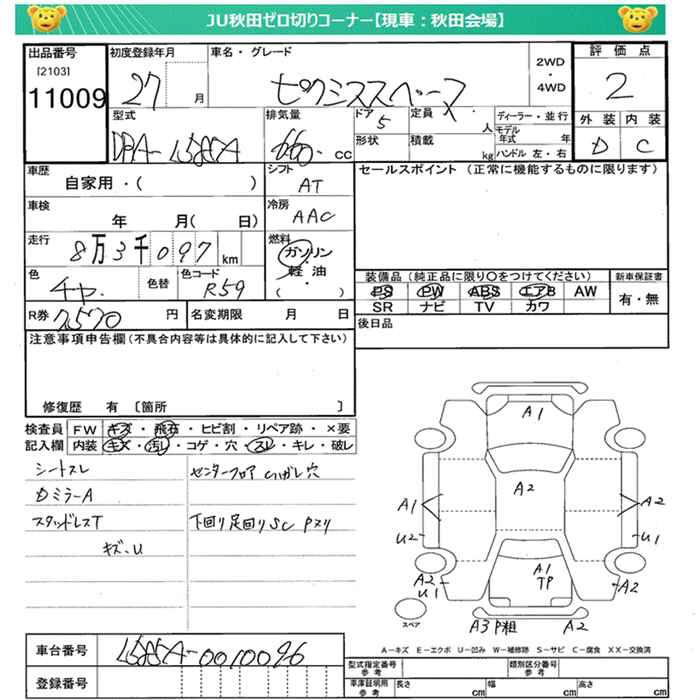 JU秋田ゼロ切りコーナー【現車：秋田会場】
出品番号
［2103］
11009
初度登録年月
27 月
車名・グレード
ピクシススペース
2WD
・
4WD
評価点
2
外装 内装
D C
型式
DBA-L585A
排気量
660 cc
ドア
5
形状
定員
人
積載
kg
ディーラー・並行
モデル
年式 年
ハンドル 左・右
車歴
自家用・( )
シフト
AT
セールスポイント（正常に機能するものに限ります）
車検
年 月( 日)
冷房
AAC
走行
8万3千097 km
燃料
ガソリン
・
軽・油
( )
色
チャ
色替
色コード
R59
装備品（純正品に限り○をつけてください）
PS PW ABS エアB AW
SR ナビ TV カワ
新車保証書
有・無
R券 7,570 円
名変期限 月 日
後日品
注意事項申告欄（不具合内容等は具体的に記入して下さい）
修復歴 有 〔箇所 〕
検査員
記入欄
FW キズ・飛石・ヒビ割・リペア跡・×要
内装 キズ・汚れ・コゲ・穴・スレ・キレ・破レ
シートスレ
DミラーA
スタッドレスT
キズ、U
センターフロア ハガレ穴
下回り足回りSC Pスリ
A1
A2
A1
A2
U2
U1
A2
U1
A1
TP
A2
スペア
A3P粗 A2
A−キズ E−エクボ U−凹み W−補修跡 S−サビ C−腐食 XX−交換済
車台番号
L585A-0010096
登録番号
型式指定番号
参考
類別区分番号
参考
車庫証明用
参考
長さ cm
幅 cm
高さ cm